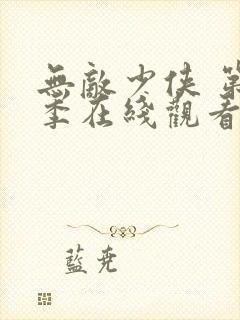 無敵少俠 第
季在綫觀看
藍堯